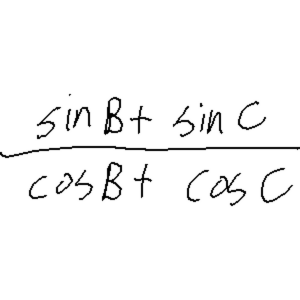 sinB+ sinC
cosB+ cosC